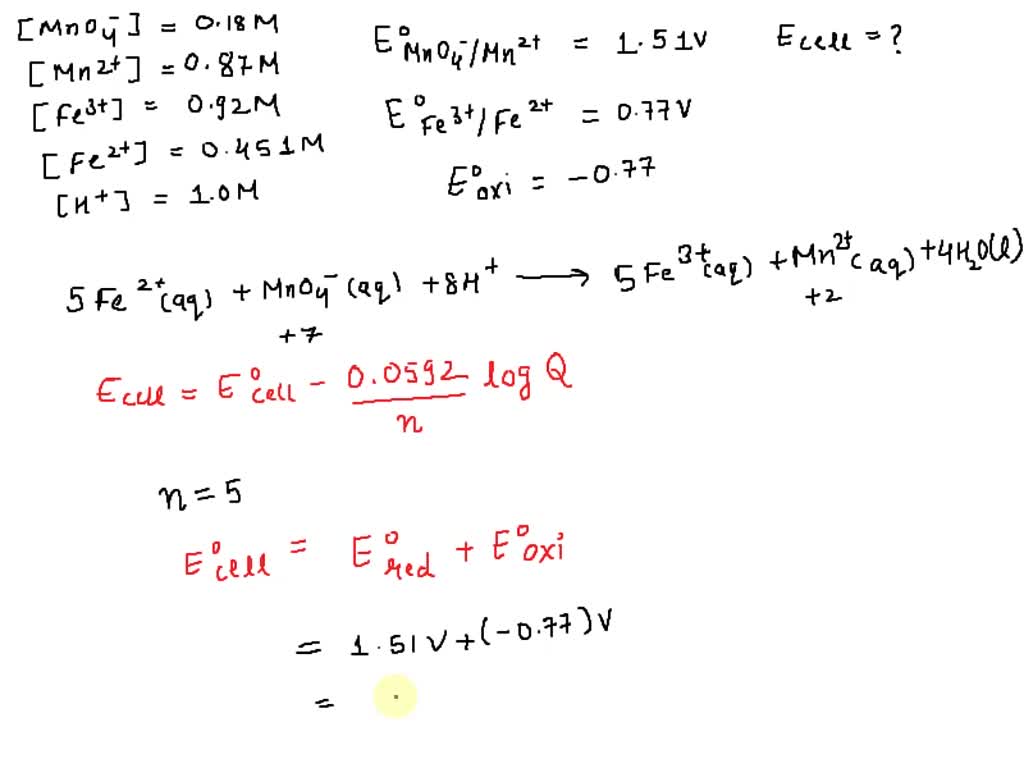 [MnO₄⁻] = 0.18M
[Mn²⁺] = 0.87M
[Fe³⁺] = 0.92M
[Fe²⁺] = 0.451M
[H⁺] = 1.0M
E°MnO₄⁻/Mn²⁺ = 1.51V
E°Fe³⁺/Fe²⁺ = 0.77V
E°oxi = -0.77
Ecell = ?
5Fe²⁺(aq) + MnO₄⁻(aq) + 8H⁺ ⟶ 5Fe³⁺(aq) + Mn²⁺(aq) + 4H₂O(l)
+7 +2
Ecell = E°cell - 0.0592/n log Q
n = 5
E°cell = E°red + E°oxi
= 1.51V + (-0.77)V
=